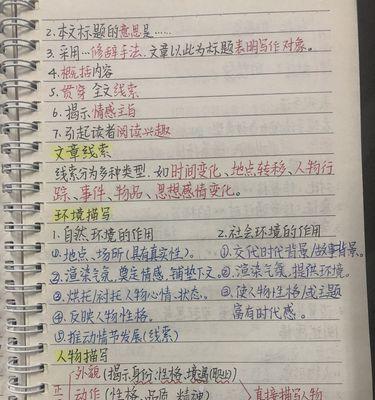 2.本文标题的意思是……
3.采用…修辞手法.文章以此为标题表明写作对象。
4.概括内容
5.贯穿全文线索
6.揭示情感主旨
7.引起读者阅读兴趣
文章线索
线索分为多种类型.如时间变化、地点转移、人物行
踪、事件、物品、思想感情变化。
环境描写
1.自然环境的作用
①地点、场所(具有真实性)。
②渲染气氛,奠定情感,铺垫下文。
③烘托/衬托人物心情、状态。
④反映人物性格。
⑤推动情节发展(线索)
2.社会环境的作用
①交代时代背景/故事背景。
②渲染气氛,提供环境。
③使人物性格/或主题
富有时代感。
人物描写
外貌(揭示身份,性格,境遇(职业)
动作(性格、品质、精神)
直接描写人物